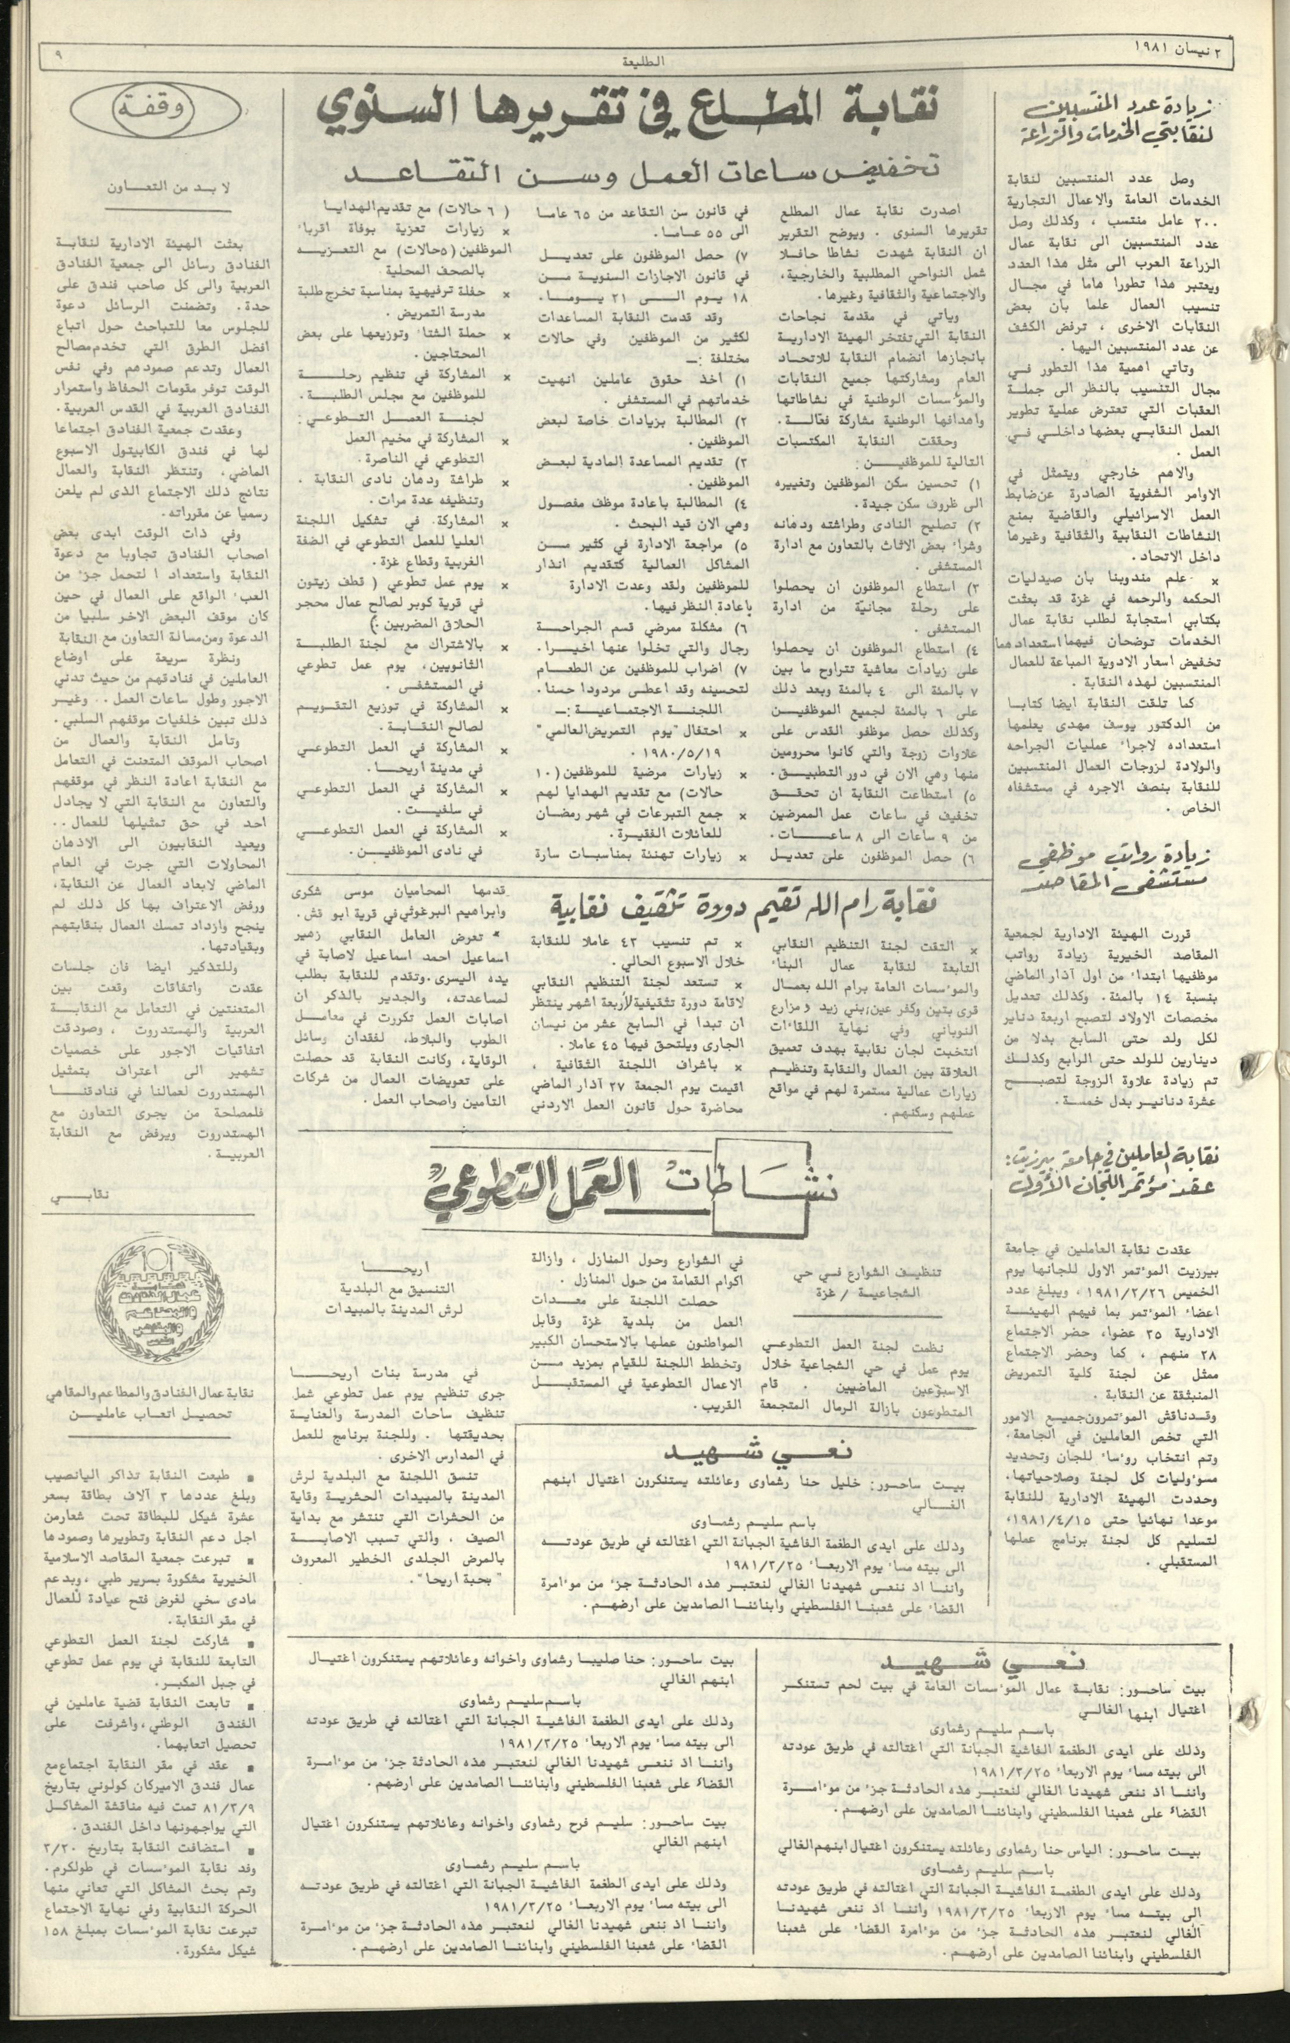 ٢ نيسان ١٩٨١
الطليعة
٩
زيادة عدد المنتسبين
لنقابتي الخدمات والزراعة
وصل عدد المنتسبين لنقابة
الخدمات العامة والاعمال التجارية
٢٠٠ عامل منتسب ، وكذلك وصل
عدد المنتسبين الى نقابة عمال
الزراعة العرب الى مثل هذا العدد
ويعتبر هذا تطورا هاما في مجال
تنسيب العمال علما بان بعض
النقابات الاخرى ، ترفض الكشف
عن عدد المنتسبين اليها .
وتاتي اهمية هذا التطور في
مجال التنسيب بالنظر الى جملة
العقبات التي تعترض عملية تطوير
العمل النقابي بعضها داخلي في
العمل .
والاهم خارجي ويتمثل في
الاوامر الشفوية الصادرة عن ضابط
العمل الاسرائيلي والقاضية بمنع
النشاطات النقابية والثقافية وغيرها
داخل الاتحاد.
× علم مندوبنا بان صيدليات
الحكمه والرحمه في غزة قد بعثت
بكتابي استجابة لطلب نقابة عمال
الخدمات توضحان فيهما استعدادهما
تخفيض اسعار الادوية المباعة للعمال
المنتسبين لهذه النقابة .
كما تلقت النقابة ايضا كتابا
من الدكتور يوسف مهدى يعلمها
استعداده لاجراء عمليات الجراحه
والولادة لزوجات العمال المنتسبين
للنقابة بنصف الاجره في مستشفاه
الخاص .
زيادة رواتب موظفي
مستشفى المقاصد
قررت الهيئة الادارية لجمعية
المقاصد الخيرية زيادة رواتب
موظفيها ابتداء من اول آذار الماضي
بنسبة ١٤ بالمئة. وكذلك تعديل
مخصصات الاولاد لتصبح اربعة دنانير
لكل ولد حتى السابع بدلا من
دينارين للولد حتى الرابع وكذلك
تم زيادة علاوة الزوجة لتصبح
عشرة دنانير بدل خمسة.
نقابة العاملين في جامعة بيرزيت:
عقد مؤتمر اللجان الأول
عقدت نقابة العاملين في جامعة
بيرزيت المؤتمر الاول للجانها يوم
الخميس ١٩٨١/٣/٢٦ ، ويبلغ عدد
اعضاء المؤتمر بما فيهم الهيئة
الادارية ٣٥ عضوا، حضر الاجتماع
٢٨ منهم ، كما وحضر الاجتماع
ممثل عن لجنة كلية التمريض
المنبثقة عن النقابة .
وقد ناقش المؤتمرون جميع الامور
التي تخص العاملين في الجامعة.
وتم انتخاب رؤساء للجان وتحديد
مسؤوليات كل لجنة وصلاحياتها.
وحددت الهيئة الادارية للنقابة
موعدا نهائيا حتى ١٩٨١/٤/١٥،
لتسليم كل لجنة برنامج عملها
المستقبلي .
نقابة المطلع في تقريرها السنوي
تخفيض ساعات العمل وسن التقاعد
اصدرت نقابة عمال المطلع
تقريرها السنوى . ويوضح التقرير
ان النقابة شهدت نشاطا حافلا
شمل النواحي المطلبية والخارجية،
والاجتماعية والثقافية وغيرها.
وياتي في مقدمة نجاحات
النقابة التي تفتخر الهيئة الادارية
بانجازها انضمام النقابة للاتحاد
العام ومشاركتها جميع النقابات
والمؤسسات الوطنية في نشاطاتها
واهدافها الوطنية مشاركة فعالة.
وحققت النقابة المكتسبات
التالية للموظفين :
١) تحسين سكن الموظفين وتغييره
الى ظروف سكن جيدة.
٢) تصليح النادى وطراشته ودهانه
وشراء بعض الاثاث بالتعاون مع ادارة
المستشفى .
٣) استطاع الموظفون ان يحصلوا
على رحلة مجانية من ادارة
المستشفى .
٤) استطاع الموظفون ان يحصلوا
على زيادات معاشية تتراوح ما بين
٧ بالمئة الى ٤٠ بالمئة وبعد ذلك
على ٦ بالمئة لجميع الموظفين
وكذلك حصل موظفو القدس على
علاوات زوجة والتي كانوا محرومين
منها وهي الان في دور التطبيق.
٥) استطاعت النقابة ان تحقق
تخفيف في ساعات عمل الممرضين
من ٩ ساعات الى ٨ ساعات.
٦) حصل الموظفون على تعديل
في قانون سن التقاعد من ٦٥ عاما
الى ٥٥ عاما.
٧) حصل الموظفون على تعديل
في قانون الاجازات السنوية من
١٨ يوم الى ٢١ يوما.
وقد قدمت النقابة المساعدات
لكثير من الموظفين وفي حالات
مختلفة :ـ
١) اخذ حقوق عاملين انهيت
خدماتهم في المستشفى .
٢) المطالبة بزيادات خاصة لبعض
الموظفين.
٣) تقديم المساعدة المادية لبعض
الموظفين.
٤) المطالبة باعادة موظف مفصول
وهي الان قيد البحث .
٥) مراجعة الادارة في كثير من
المشاكل العمالية كتقديم انذار
للموظفين ولقد وعدت الادارة
باعادة النظر فيها.
٦) مشكلة ممرضي قسم الجراحة
رجال والتي تخلوا عنها اخيرا.
٧) اضراب للموظفين عن الطعام
لتحسينه وقد اعطى مردودا حسنا.
اللجنة الاجتماعية :ـ
× احتفال "يوم التمريض العالمي"
١٩٨٠/٥/١٩ .
× زيارات مرضية للموظفين (١٠
حالات) مع تقديم الهدايا لهم
× جمع التبرعات في شهر رمضان
للعائلات الفقيرة.
× زيارات تهنئة بمناسبات سارة
( ٦ حالات) مع تقديم الهدايا
× زيارات تعزية بوفاة اقرباء
الموظفين (٥حالات) مع التعزيه
بالصحف المحلية .
× حفلة ترفيهية بمناسبة تخرج طلبة
مدرسة التمريض.
× حملة الشتاء وتوزيعها على بعض
المحتاجين .
× المشاركة في تنظيم رحلة
للموظفين مع مجلس الطلبة.
لجنة العمل التطوعي:
× المشاركة في مخيم العمل
التطوعي في الناصرة.
× طراشة ودهان نادى النقابة .
وتنظيفه عدة مرات.
× المشاركة في تشكيل اللجنة
العليا للعمل التطوعي في الضفة
الغربية وقطاع غزة.
× يوم عمل تطوعي ( قطف زيتون
في قرية كوبر لصالح عمال محجر
الحلاق المضربين.)
× بالاشتراك مع لجنة الطلبة
الثانويين، يوم عمل تطوعي
في المستشفى .
× المشاركة في توزيع التقويم
لصالح النقابة.
× المشاركة في العمل التطوعي
في مدينة اريحا.
× المشاركة في العمل التطوعي
في سلفيت.
× المشاركة في العمل التطوعي
في نادى الموظفين.
نقابة رام الله تقيم دورة تثقيف نقابية
× التقت لجنة التنظيم النقابي
التابعة لنقابة عمال البناء
والمؤسسات العامة برام الله بعمال
قرى بتين وكفر عين، بني زيد ومزارع
النوباني وفي نهاية اللقاءات
انتخبت لجان نقابية بهدف تعميق
العلاقة بين العمال والنقابة وتنظيم
زيارات عمالية مستمرة لهم في مواقع
عملهم وسكنهم.
× تم تنسيب ٤٣ عاملا للنقابة
خلال الاسبوع الحالي.
× تستعد لجنة التنظيم النقابي
لاقامة دورة تثقيفية لاربعة اشهر ينتظر
ان تبدا في السابع عشر من نيسان
الجارى ويلتحق فيها ٤٥ عاملا.
× باشراف اللجنة الثقافية ،
اقيمت يوم الجمعة ٢٧ آذار الماضي
محاضرة حول قانون العمل الاردني
قدمها المحاميان موسى شكرى
وابراهيم البرغوثي في قرية ابو قش.
× تعرض العامل النقابي زهير
اسماعيل احمد اسماعيل لاصابة في
يده اليسرى. وتقدم للنقابة بطلب
لمساعدته، والجدير بالذكر ان
اصابات العمل تكررت في معامل
الطوب والبلاط، لفقدان وسائل
الوقاية، وكانت النقابة قد حصلت
على تعويضات العمال من شركات
التامين واصحاب العمل.
نشاطات العمل التطوعي
تنظيف الشوارع في حي
الشجاعية / غزة
نظمت لجنة العمل التطوعي
يوم عمل في حي الشجاعية خلال
الاسبوعين الماضيين . قام
المتطوعون بازالة الرمال المتجمعة
في الشوارع وحول المنازل ، وازالة
اكوام القمامة من حول المنازل .
حصلت اللجنة على معدات
العمل من بلدية غزة وقابل
المواطنون عملها بالاستحسان الكبير
وتخطط اللجنة للقيام بمزيد من
الاعمال التطوعية في المستقبل
القريب.
اريحا
التنسيق مع البلدية
لرش المدينة بالمبيدات
في مدرسة بنات اريحا
جرى تنظيم يوم عمل تطوعي شمل
تنظيف ساحات المدرسة والعناية
بحديقتها . وللجنة برنامج للعمل
في المدارس الاخرى .
تنسق اللجنة مع البلدية لرش
المدينة بالمبيدات الحشرية وقاية
من الحشرات التي تنتشر مع بداية
الصيف . والتي تسبب الاصابة
بالمرض الجلدى الخطير المعروف
"بحبة اريحا".
نعي شهيد
بيت ساحور: خليل حنا رشماوى وعائلته يستنكرون اغتيال ابنهم
الغالي
باسم سليم رشماوى
وذلك على ايدى الطغمة الفاشية الجبانة التي اغتالته في طريق عودته
الى بيته مساء يوم الاربعاء ١٩٨١/٣/٢٥
واننا اذ ننعى شهيدنا الغالي لنعتبر هذه الحادثة جزء من مؤامرة
القضاء على شعبنا الفلسطيني وابنائنا الصامدين على ارضهم.
نعي شهيد
بيت ساحور: نقابة عمال المؤسسات العامة في بيت لحم تستنكر
اغتيال ابنها الغالي
باسم سليم رشماوى
وذلك على ايدى الطغمة الفاشية الجبانة التي اغتالته في طريق عودته
الى بيته مساء يوم الاربعاء ١٩٨١/٣/٢٥
واننا اذ ننعى شهيدنا الغالي لنعتبر هذه الحادثة جزء من مؤامرة
القضاء على شعبنا الفلسطيني وابنائنا الصامدين على ارضهم.
بيت ساحور: الياس حنا رشماوى وعائلته يستنكرون اغتيال ابنهم الغالي
باسم سليم رشماوى
وذلك على ايدى الطغمة الفاشية الجبانة التي اغتالته في طريق عودته
الى بيته مساء يوم الاربعاء ١٩٨١/٣/٢٥ واننا اذ ننعى شهيدنا
الغالي لنعتبر هذه الحادثة جزء من مؤامرة القضاء على شعبنا
الفلسطيني وابنائنا الصامدين على ارضهم.
بيت ساحور: حنا صليبا رشماوى واخوانه وعائلاتهم يستنكرون اغتيال
ابنهم الغالي
باسم سليم رشماوى
وذلك على ايدى الطغمة الفاشية الجبانة التي اغتالته في طريق عودته
الى بيته مساء يوم الاربعاء ١٩٨١/٣/٢٥
واننا اذ ننعى شهيدنا الغالي لنعتبر هذه الحادثة جزء من مؤامرة
القضاء على شعبنا الفلسطيني وابنائنا الصامدين على ارضهم.
بيت ساحور: سليم فرح رشماوى واخوانه وعائلاتهم يستنكرون اغتيال
ابنهم الغالي
باسم سليم رشماوى
وذلك على ايدى الطغمة الفاشية الجبانة التي اغتالته في طريق عودته
الى بيته مساء يوم الاربعاء ١٩٨١/٣/٢٥
واننا اذ ننعى شهيدنا الغالي لنعتبر هذه الحادثة جزء من مؤامرة
القضاء على شعبنا الفلسطيني وابنائنا الصامدين على ارضهم.
وقفة
لا بد من التعاون
بعثت الهيئة الادارية لنقابة
الفنادق رسائل الى جمعية الفنادق
العربية والى كل صاحب فندق على
حدة. وتضمنت الرسائل دعوة
للجلوس معا للتباحث حول اتباع
افضل الطرق التي تخدم مصالح
العمال وتدعم صمودهم وفي نفس
الوقت توفر مقومات الحفاظ واستمرار
الفنادق العربية في القدس العربية.
وعقدت جمعية الفنادق اجتماعا
لها في فندق الكابيتول الاسبوع
الماضي، وتنتظر النقابة والعمال
نتائج ذلك الاجتماع الذى لم يلعن
رسميا عن مقرراته.
وفي ذات الوقت ابدى بعض
اصحاب الفنادق تجاوبا مع دعوة
النقابة واستعداد ا لتحمل جزء من
العبء الواقع على العمال في حين
كان موقف البعض الاخر سلبيا من
الدعوة ومن مسالة التعاون مع النقابة
ونظرة سريعة على اوضاع
العاملين في فنادقهم من حيث تدني
الاجور وطول ساعات العمل.. وغير
ذلك تبين خلفيات موقفهم السلبي.
وتامل النقابة والعمال من
اصحاب الموقف المتعنت في التعامل
مع النقابة اعادة النظر في موقفهم
والتعاون مع النقابة التي لا يجادل
احد في حق تمثيلها للعمال..
ويعيد النقابيون الى الاذهان
المحاولات التي جرت في العام
الماضي لابعاد العمال عن النقابة،
ورفض الاعتراف بها كل ذلك لم
ينجح وازداد تمسك العمال بنقابتهم
وبقيادتها.
وللتذكير ايضا فان جلسات
عقدت واتفاقات وقعت بين
المتعنتين في التعامل مع النقابة
العربية والهستدروت ، وصودقت
اتفاقيات الاجور على خصميات
تشهير الى اعتراف بتمثيل
الهستدروت لعمالنا في فنادقنا
فلمصلحة من يجرى التعاون مع
الهستدروت ويرفض مع النقابة
العربية.
نقابي
نقابة عمال الفنادق والمطاعم والمقاهي
تحصيل اتعاب عاملين
■ طبعت النقابة تذاكر اليانصيب
وبلغ عددها ٣ آلاف بطاقة بسعر
عشرة شيكل للبطاقة تحت شعار من
اجل دعم النقابة وتطويرها وصمودها
■ تبرعت جمعية المقاصد الاسلامية
الخيرية مشكورة بسرير طبي ، وبدعم
مادى سخي لغرض فتح عيادة للعمال
في مقر النقابة.
■ شاركت لجنة العمل التطوعي
التابعة للنقابة في يوم عمل تطوعي
في جبل المكبر.
■ تابعت النقابة قضية عاملين في
الفندق الوطني، واشرفت على
تحصيل اتعابهما.
■ عقد في مقر النقابة اجتماع مع
عمال فندق الاميركان كولوني بتاريخ
٨١/٣/٩ تمت فيه مناقشة المشاكل
التي يواجهونها داخل الفندق.
■ استضافت النقابة بتاريخ ٣/٢٠
وفد نقابة المؤسسات في طولكرم.
وتم بحث المشاكل التي تعاني منها
الحركة النقابية وفي نهاية الاجتماع
تبرعت نقابة المؤسسات بمبلغ ١٥٨
شيكل مشكورة.